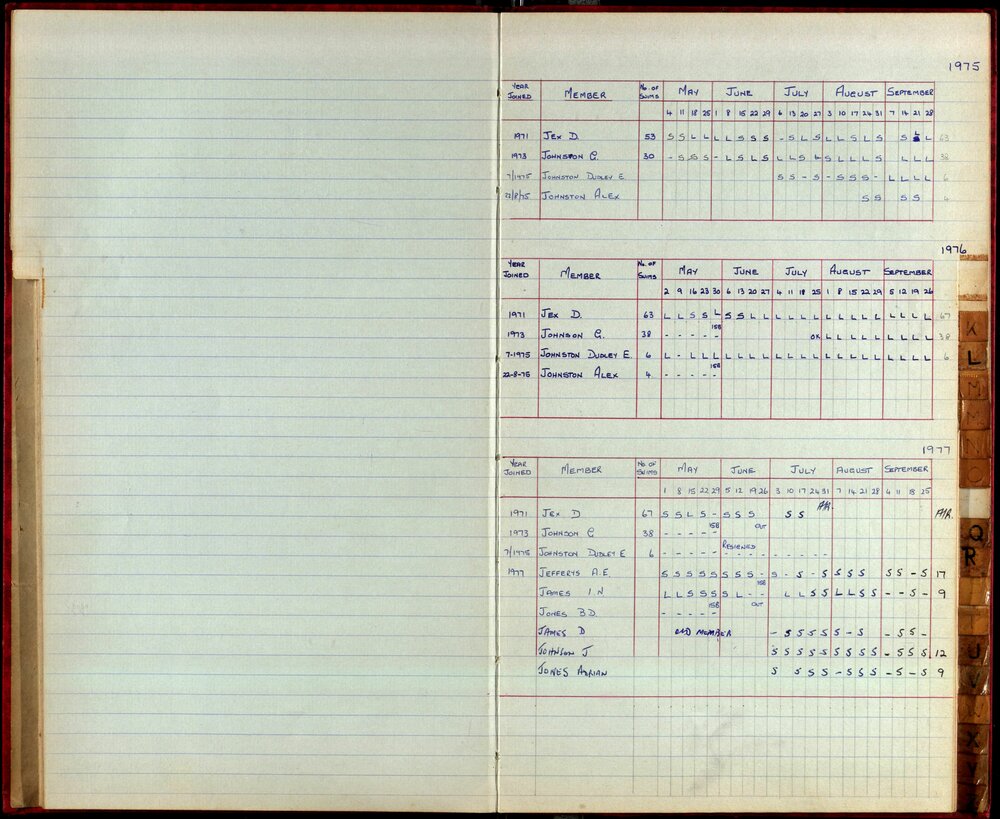 1975
YEAR JOINED MEMBER No. OF SWIMS MAY JUNE JULY AUGUST SEPTEMBER
4 11 18 25 1 8 15 22 29 6 13 20 27 3 10 17 24 31 7 14 21 28
1971 JEX D. 53 S S L L L L S S S - S L S L L S L S S L L 63
1973 JOHNSON G. 30 - S S S - L S L S L L S L S L L L S L L L 38
7/1975 JOHNSTON DUDLEY E. S S - S - S S S - L L L L 6
22/8/75 JOHNSTON ALEX S S S S 4
1976
YEAR JOINED MEMBER No. OF SWIMS MAY JUNE JULY AUGUST SEPTEMBER
2 9 16 23 30 6 13 20 27 4 11 18 25 1 8 15 22 29 5 12 19 26
1971 JEX D. 63 L L S S L S S L L L L L L L L L L L L L L L 67
1973 JOHNSON G. 38 - - - - - 15B OK L L L L L L L L L 38
7-1975 JOHNSTON DUDLEY E. 6 L - L L L L L L L L L L L L L L L L L L L L 6
22-8-75 JOHNSTON ALEX 4 - - - - - 15B
1977
YEAR JOINED MEMBER No. OF SWIMS MAY JUNE JULY AUGUST SEPTEMBER
1 8 15 22 29 5 12 19 26 3 10 17 24 31 7 14 21 28 4 11 18 25
1971 JEX D 67 S S L S - S S S S S
1973 JOHNSON G 38 - - - - - 15B OUT
7/1975 JOHNSTON DUDLEY E 6 - - - - - RESIGNED - - - - - - - - -
1977 JEFFERYS A.E. S S S S S S S S - S - S - S S S S S S - S 17
JAMES I N L L S S S S L - - 15B L L S S L L S S - - S - 9
JONES B D. - - - - - 15B OUT
JAMES D OLD MEMBER - S S S S S - S - S S -
JOHNSON J S S S S S S S S S - S S S 12
JONES ADRIAN S S S S - S S S - S - S 9
K
L
M
N
O
Q
R
U
V
X